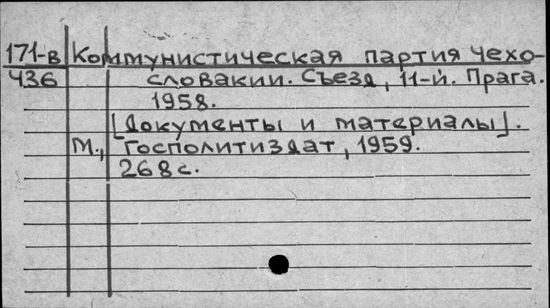 171-в Коммунистическая партия Чехо-
Ч36 словакии. Съезд, 11-й. Прага.
1958.
[Документы и материалы].
М., Госполитиздат, 1959.
268 с.